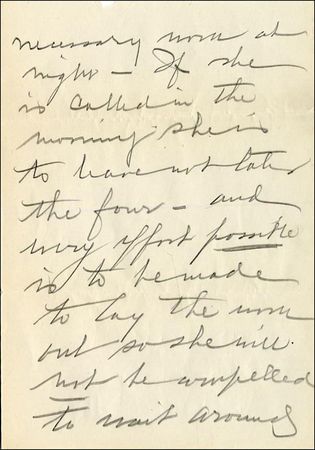 necessary work at
night - If she
is called in the
morning she is
to leave not later
the four - and
every effort possible
is to be made
to lay the work
out so she will
not be compelled
to wait around